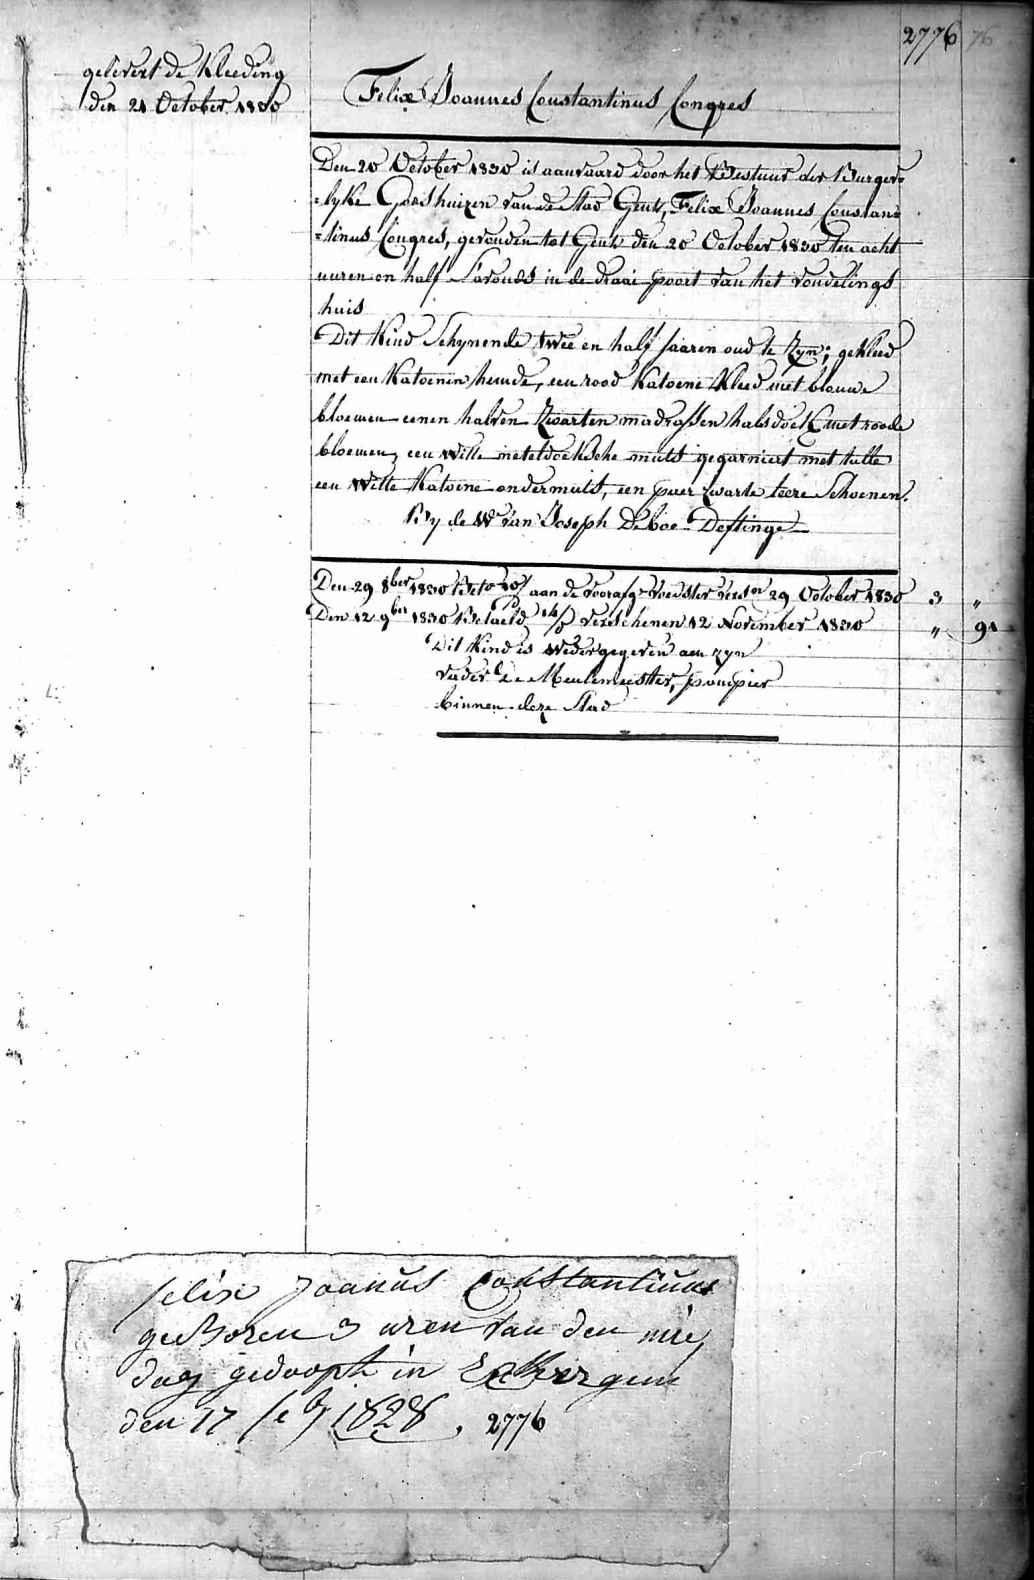 2776 76
gelevert de Kleeding
den 21 October 1830
Felix Joannes Constantinus Congres
Den 20 October 1830 is aanvaard door het Bestuur der Burger=
=lyke Godshuizen van de Stad Gend, Felix Joannes Constan=
=tinus Congres, gevonden tot Gend den 20 October 1830 ten acht
uuren en half Savonds in de draai poort van het vondelings
huis
Dit Kind Schynende twee en half Jaaren oud te Zyn; gekleed
met een Katoenen hemde, een rood Katoene Kleed met blauwe
bloemen eenen halven Zwarten madrassen halsdoek met roode
bloemen, een Witte neteldoeksche muts gegarniert met tulle
een Witte Katoene ondermuts, een paer zwarte leere Schoenen.
By de We van Joseph De boe Deftinge
Den 29 8ber 1830 aan de voorafge voedster 29 October 1830 3 "
Den 12 9ber 1830 Betaeld verschenen 12 November 1830 " 91
Dit Kind is wedergegeven aen zyn
vader De Meulemeester, pompier
binnen deze Stad
felix Joanus Constantinus
geboren 3 uren van den mie
dag gedoopt in Eckergem
den 17 1828. 2776